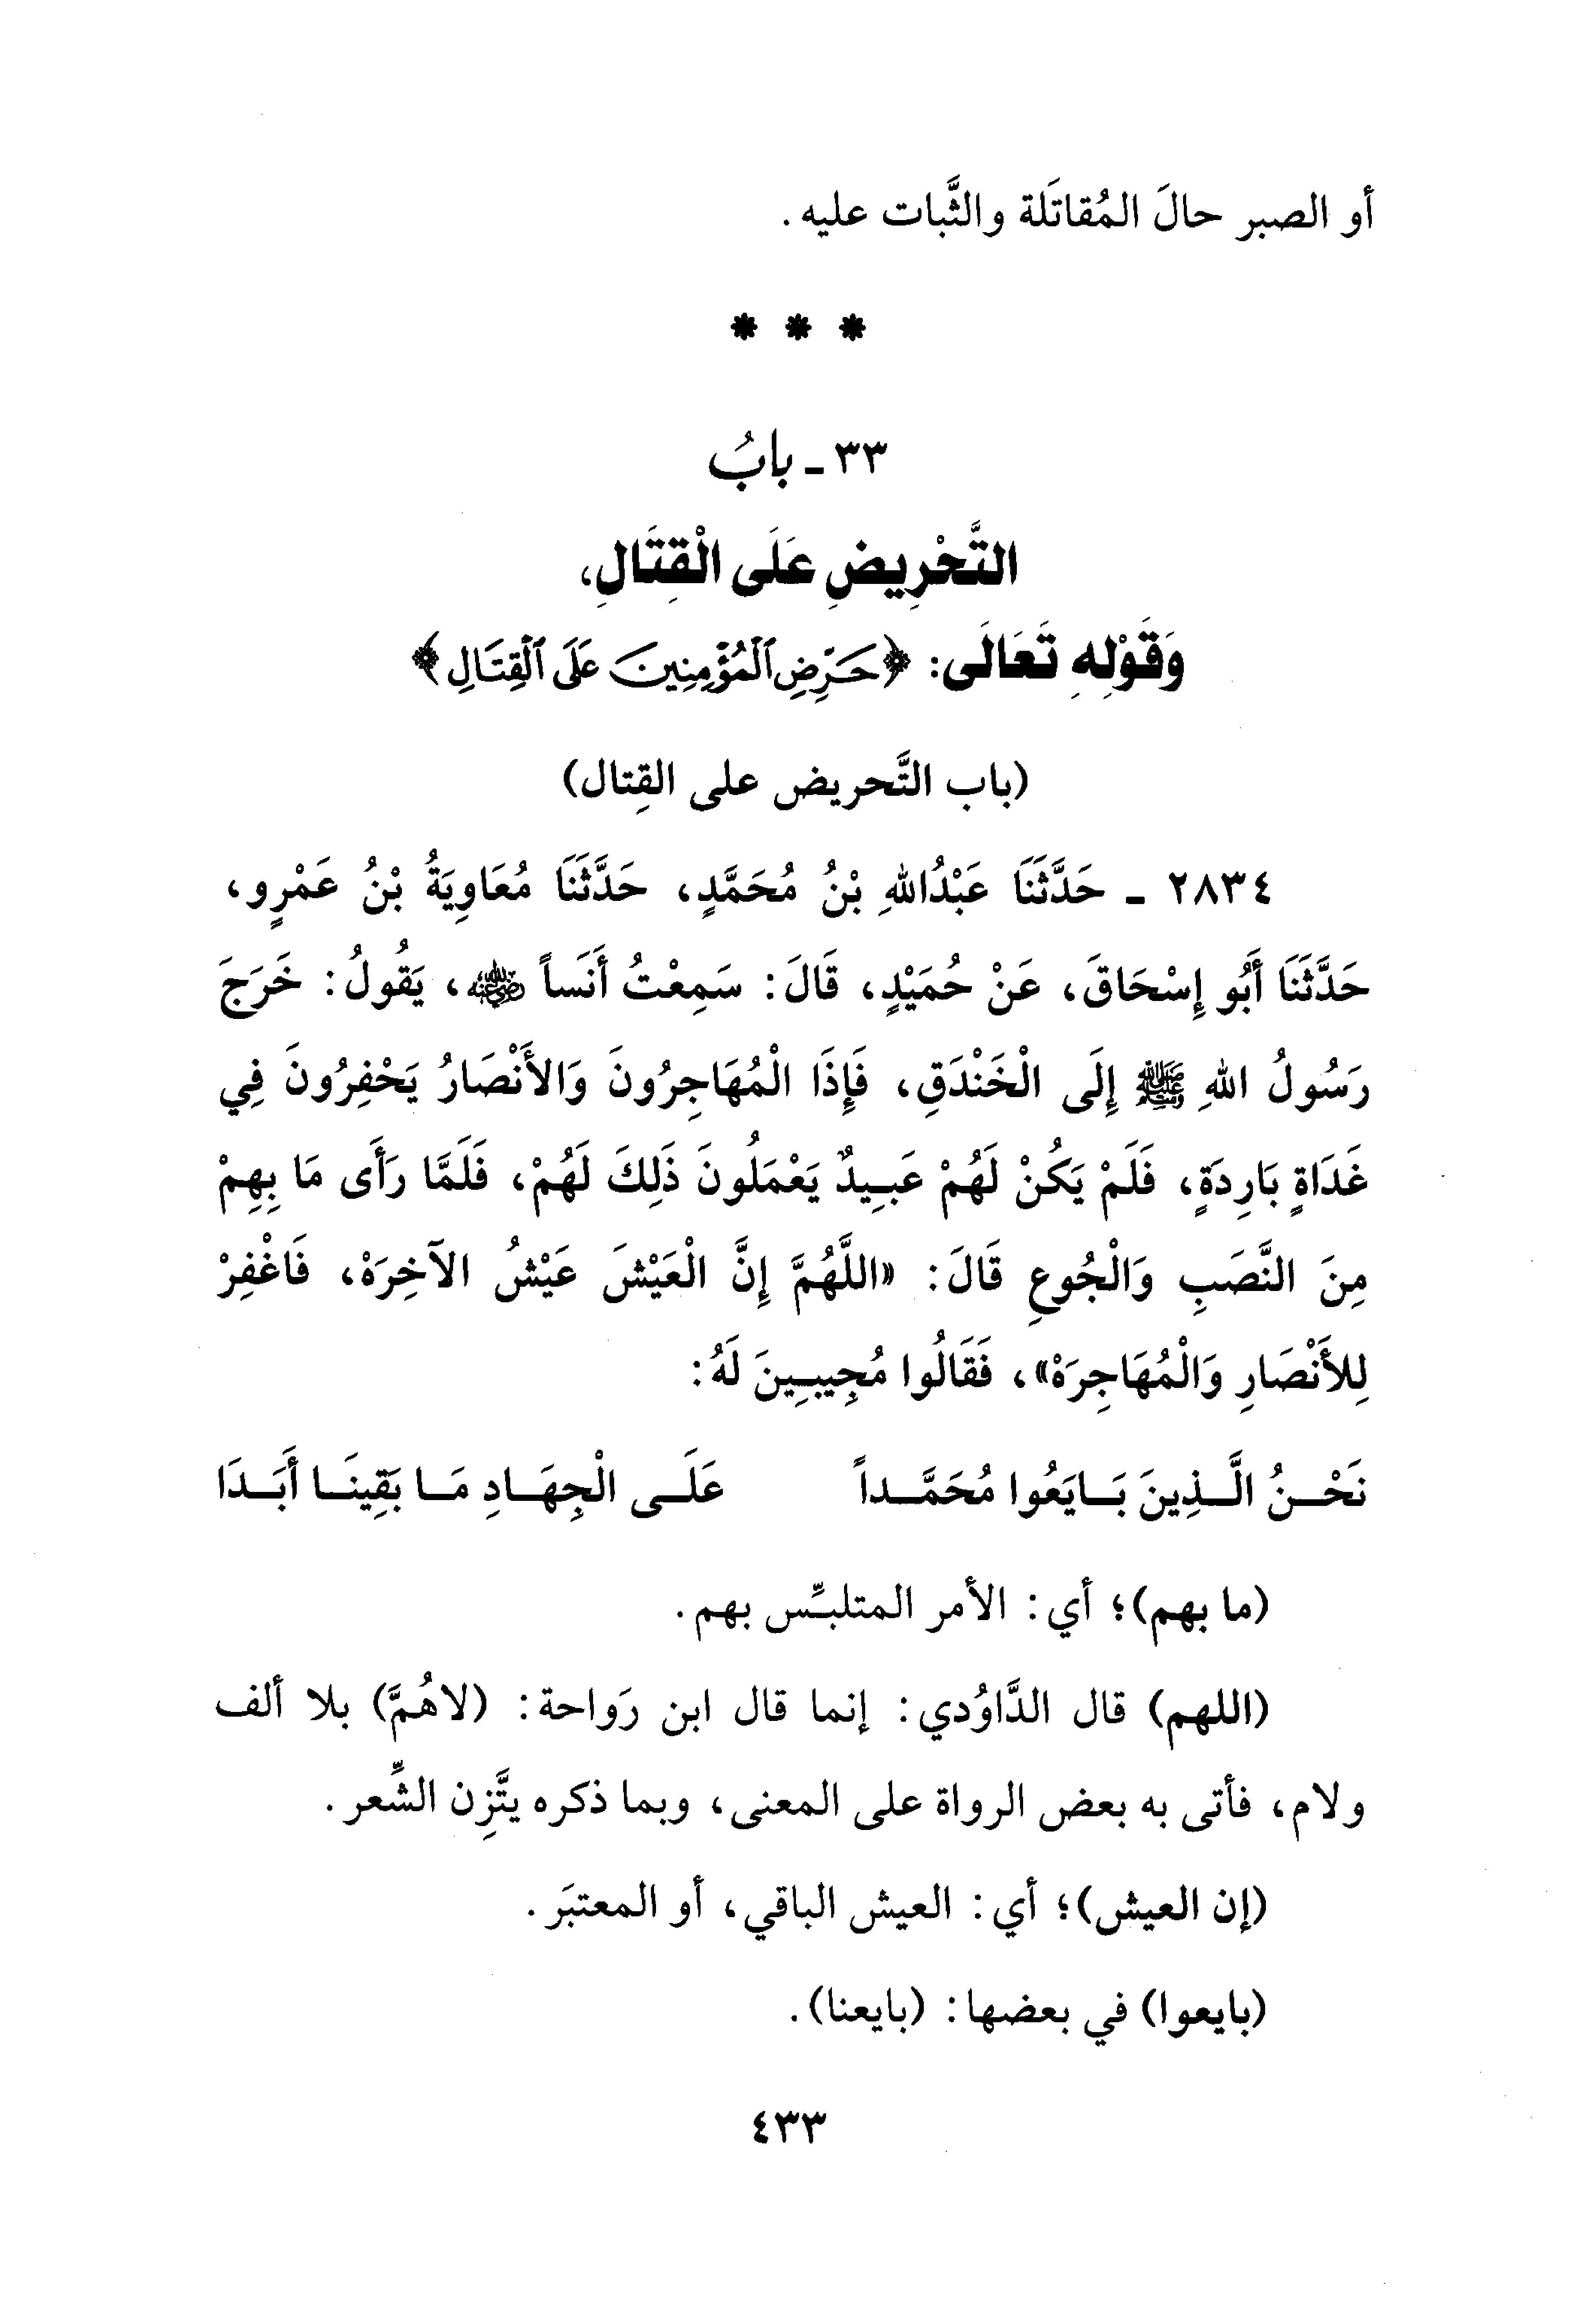 أو الصبر حالَ المُقاتَلة والثَّبات عليه.
* * *
٣٣ ـ بابُ
التَّحْرِيضِ عَلَى الْقِتَالِ،
وَقَوْلِهِ تَعَالَى: ﴿حَرِّضِ ٱلْمُؤْمِنِينَ عَلَى ٱلْقِتَالِ﴾
(باب التَّحريض على القِتال)
٢٨٣٤ ـ حَدَّثَنَا عَبْدُاللهِ بْنُ مُحَمَّدٍ، حَدَّثَنَا مُعَاوِيَةُ بْنُ عَمْرٍو،
حَدَّثَنَا أَبُو إِسْحَاقَ، عَنْ حُمَيْدٍ، قَالَ: سَمِعْتُ أَنَساً رضي الله عنه، يَقُولُ: خَرَجَ
رَسُولُ اللهِ ﷺ إِلَى الْخَنْدَقِ، فَإِذَا الْمُهَاجِرُونَ وَالأَنْصَارُ يَحْفِرُونَ فِي
غَدَاةٍ بَارِدَةٍ، فَلَمْ يَكُنْ لَهُمْ عَبِيدٌ يَعْمَلُونَ ذَلِكَ لَهُمْ، فَلَمَّا رَأَى مَا بِهِمْ
مِنَ النَّصَبِ وَالْجُوعِ قَالَ: «اللَّهُمَّ إِنَّ الْعَيْشَ عَيْشُ الآخِرَهْ، فَاغْفِرْ
لِلأَنْصَارِ وَالْمُهَاجِرَهْ»، فَقَالُوا مُجِيبِينَ لَهُ:
نَحْنُ الَّذِينَ بَايَعُوا مُحَمَّداً عَلَى الْجِهَادِ مَا بَقِينَا أَبَدَا
(ما بهم)؛ أي: الأمر المتلبِّس بهم.
(اللهم) قال الدَّاوُدي: إنما قال ابن رَواحة: (لاهُمَّ) بلا ألف
ولام، فأتى به بعض الرواة على المعنى، وبما ذكره يتَّزِن الشِّعر.
(إن العيش)؛ أي: العيش الباقي، أو المعتبَر.
(بايعوا) في بعضها: (بايعنا).
٤٣٣